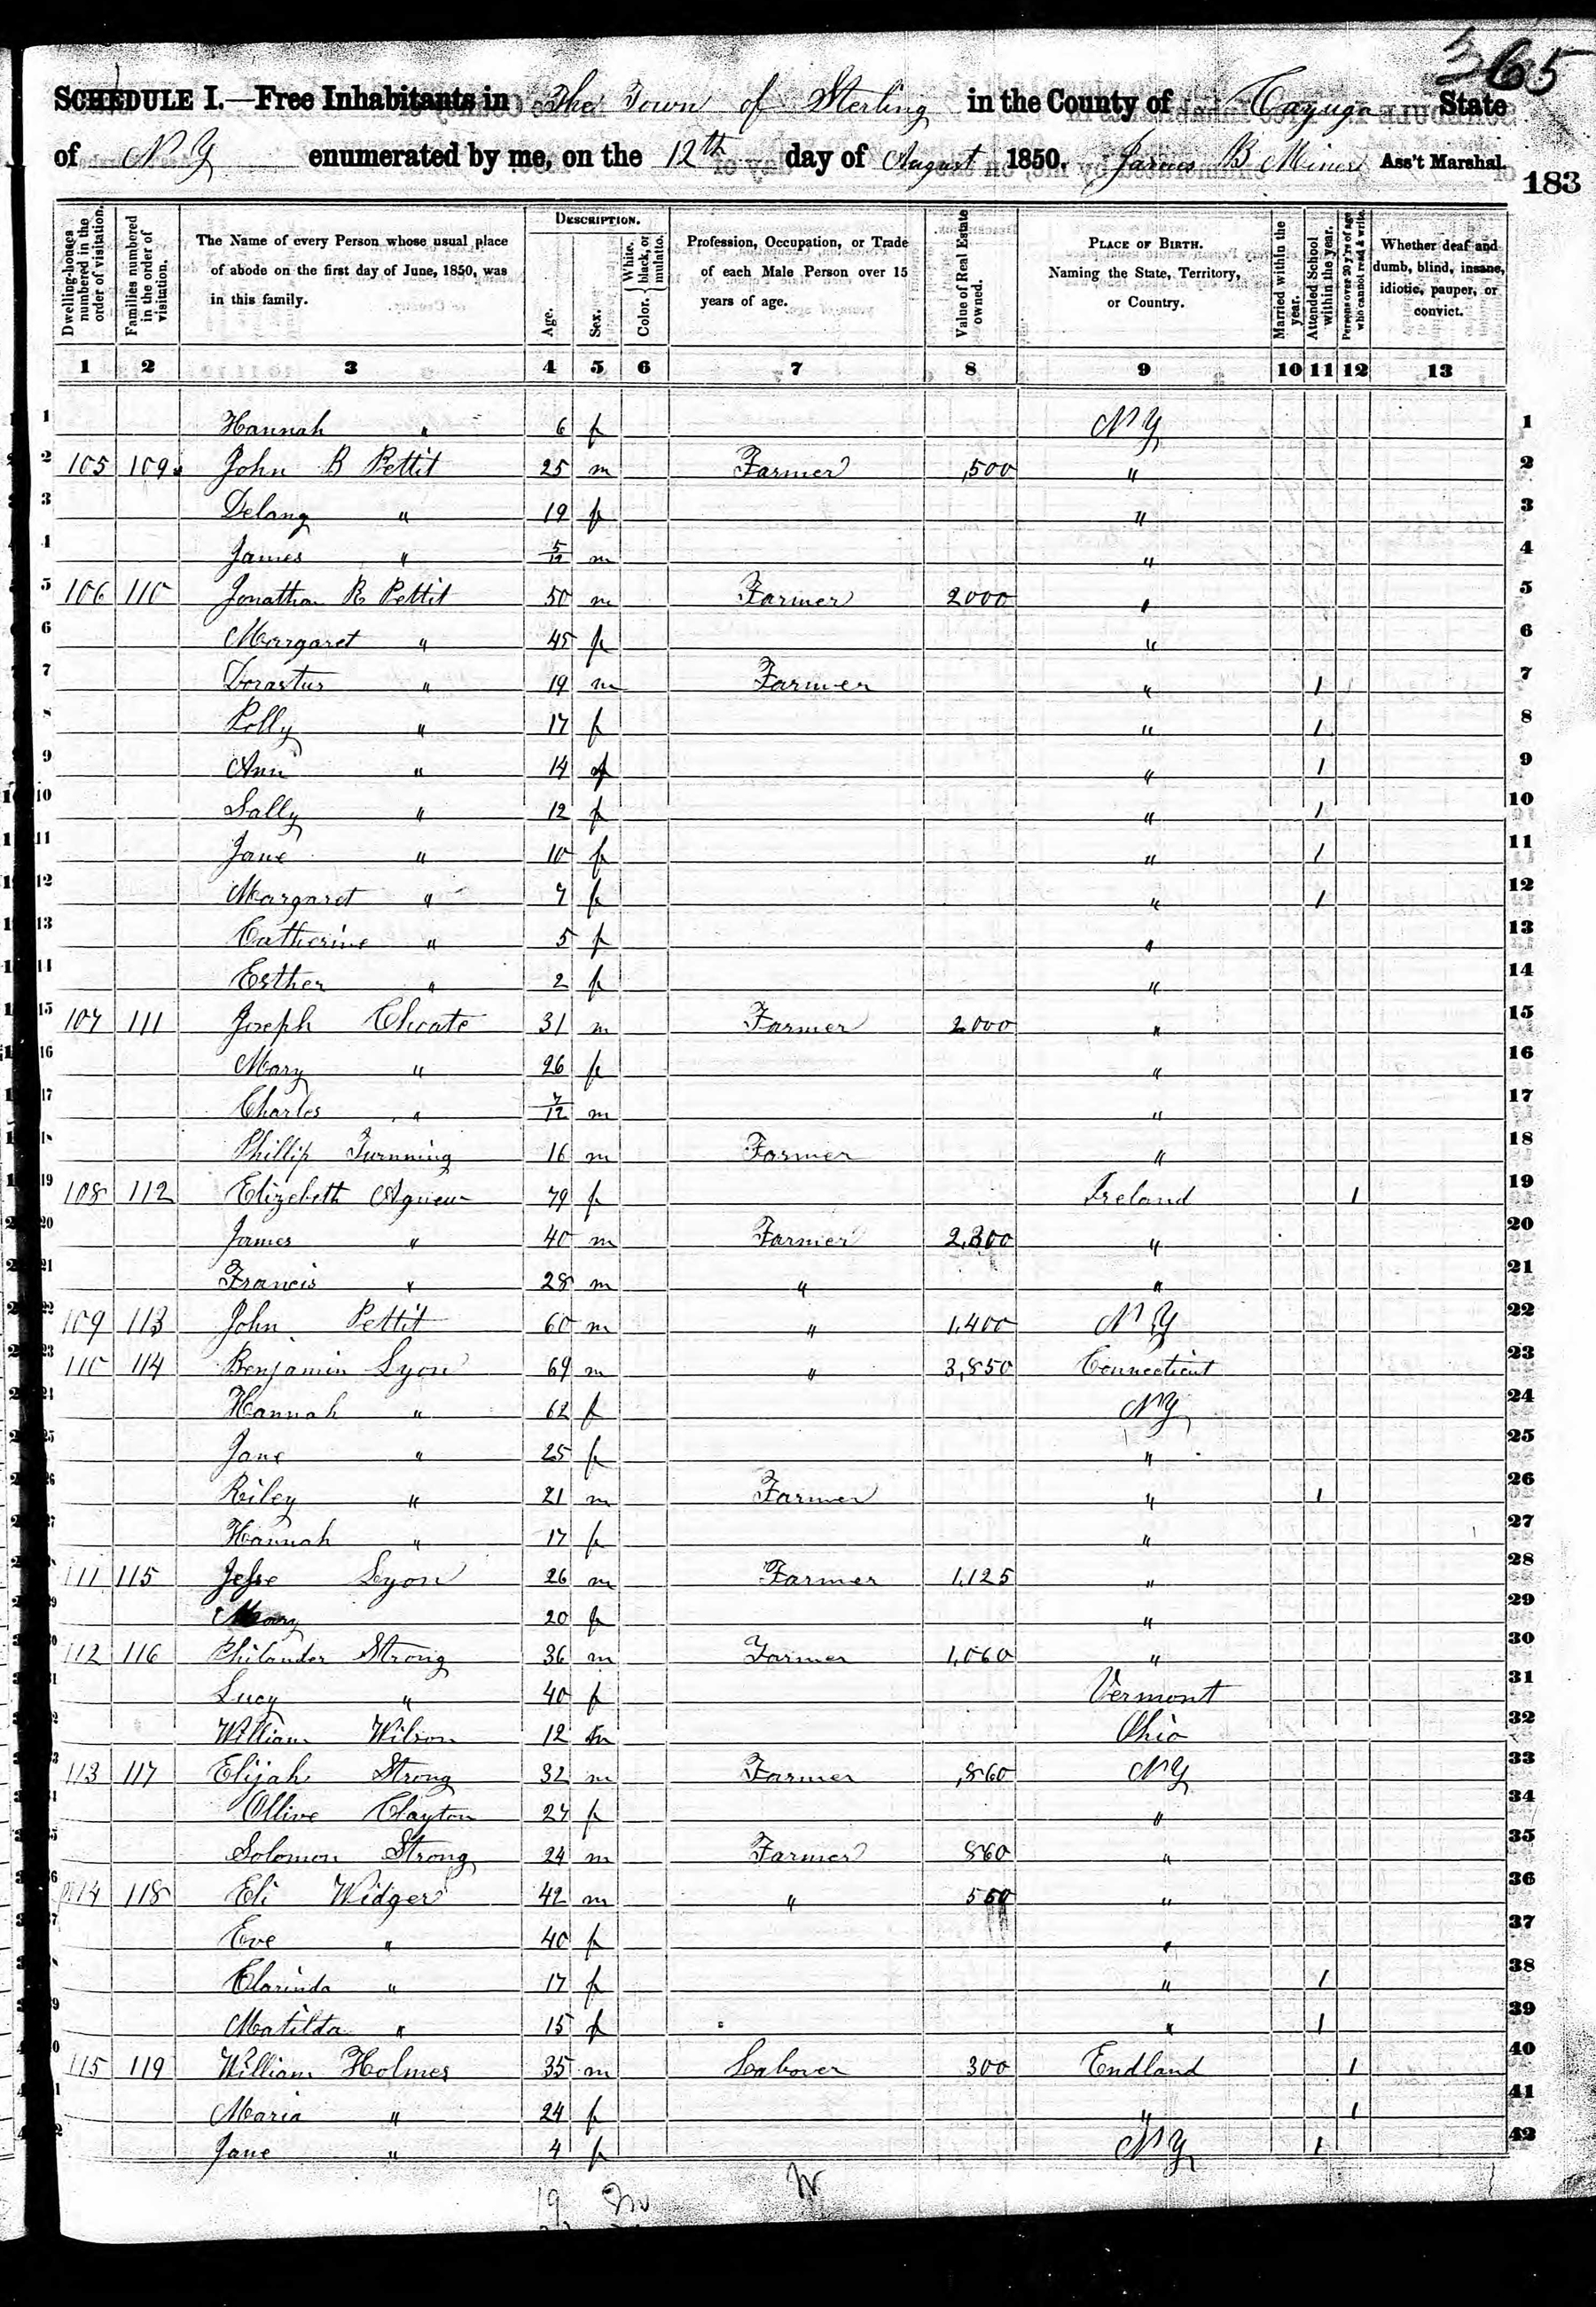 365
SCHEDULE I.—Free Inhabitants in The Town of Sterling in the County of Cayuga State
of N Y enumerated by me, on the 12th day of August 1850. James B Miner Ass't Marshal.
183
Dwelling-houses numbered in the order of visitation. Families numbered in the order of visitation. The Name of every Person whose usual place of abode on the first day of June, 1850, was in this family. DESCRIPTION. Age. Sex. Color. { White, black, or mulatto. Profession, Occupation, or Trade of each Male Person over 15 years of age. Value of Real Estate owned. PLACE OF BIRTH. Naming the State, Territory, or Country. Married within the year. Attended School within the year. Persons over 20 y'rs of age who cannot read & write. Whether deaf and dumb, blind, insane, idiotic, pauper, or convict.
1 2 3 4 5 6 7 8 9 10 11 12 13
1 Hannah " 6 f N Y 1
2 105 109 John B Pettit 25 m Farmer ,500 " 2
3 Delany " 19 f " 3
4 James " 5/12 m " 4
5 106 110 Jonathan R Pettit 50 m Farmer 2000 " 5
6 Margaret " 45 f " 6
7 Dorastus " 19 m Farmer " 1 7
8 Polly " 17 f " 1 8
9 Ann " 14 f " 1 9
10 Sally " 12 f " 1 10
11 Jane " 10 f " 1 11
12 Margaret " 7 f " 1 12
13 Catherine " 5 f " 13
14 Esther " 2 f " 14
15 107 111 Joseph Choate 31 m Farmer 2000 " 15
16 Mary " 26 f " 16
17 Charles " 7/12 m " 17
18 Phillip Turnning 16 m Farmer " 18
19 108 112 Elizebeth Agnew 79 f Ireland 1 19
20 James " 40 m Farmer 2,300 " 20
21 Francis " 28 m " " 21
22 109 113 John Pettit 60 m " 1,400 N Y 22
23 110 114 Benjamin Lyon 69 m " 3,850 Connecticut 23
24 Hannah " 62 f N Y 24
25 Jane " 25 f " 25
26 Riley " 21 m Farmer " 1 26
27 Hannah " 17 f " 27
28 111 115 Jesse Lyon 26 m Farmer 1,125 " 28
29 Mary 20 f " 29
30 112 116 Philander Strong 36 m Farmer 1,060 " 30
31 Lucy " 40 f Vermont 31
32 William Wilson 12 m Ohio 32
33 113 117 Elijah Strong 32 m Farmer ,860 N Y 33
34 Ollive Clayton 27 f " 34
35 Solomon Strong 24 m Farmer 860 " 35
36 114 118 Eli Widger 42 m " 550 " 36
37 Eve " 40 f " 37
38 Clarinda " 17 f " 1 38
39 Matilda " 15 f " 1 39
40 115 119 William Holmes 35 m Labover 300 Endland 1 40
41 Maria " 24 f " 1 41
42 Jane " 4 f N Y 1 42
19